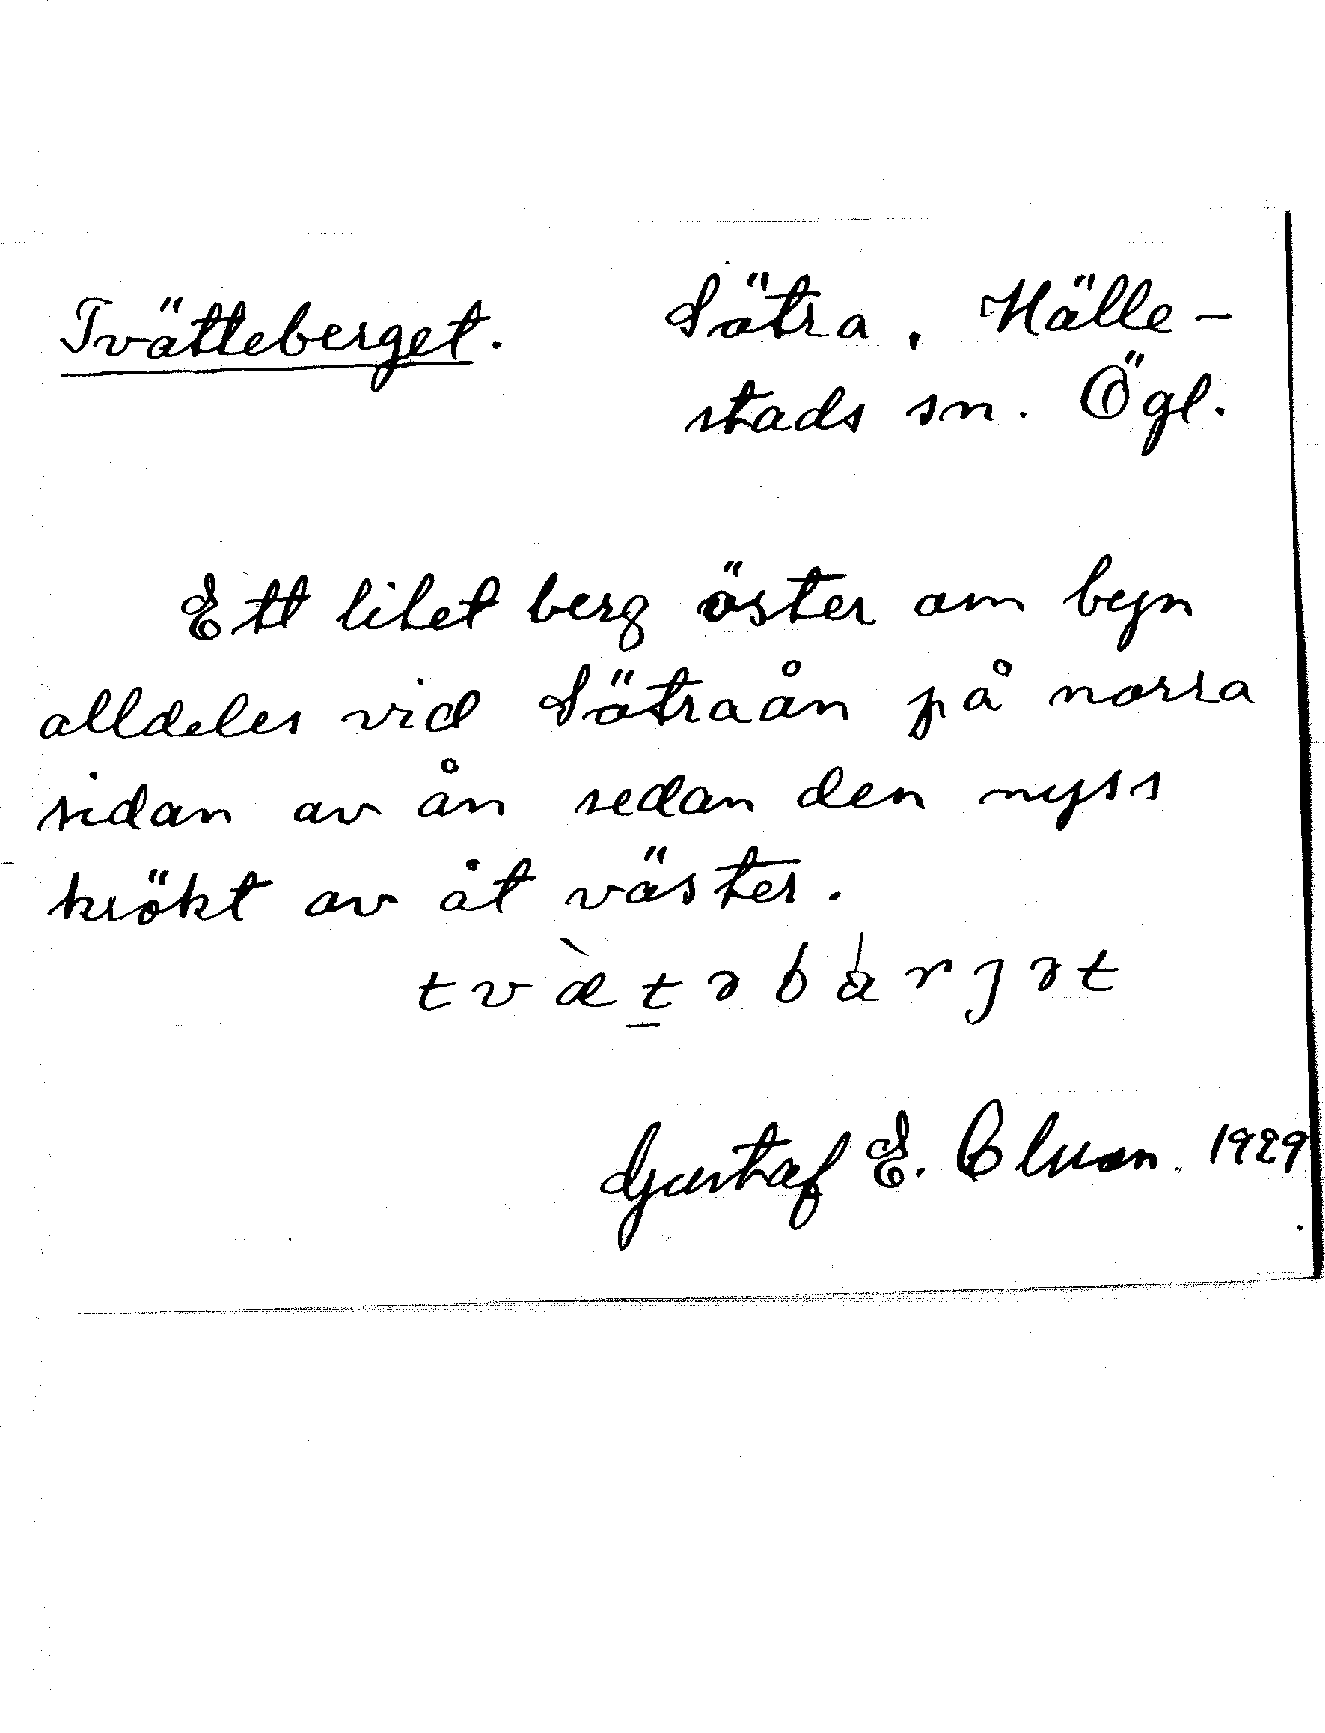 Tvätteberget. Sätra, Hälle-
stads sn. Ögl.
Ett litet berg öster om byn
alldeles vid Sätraån på norra
sidan av ån sedan den nyss
krökt av åt väster.
tvæ̀t̲əbárjət
Gustaf E. 1929